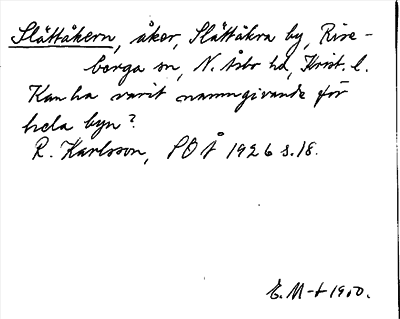 Slättåkern, åker, Slättåkra by, Rise-
berga sn, N. Åsbo hd, Krist. l.
Kan ha varit namngivande för
hela byn?
R. Karlsson, POÅ 1926 s. 18.
E. M-t 1950.